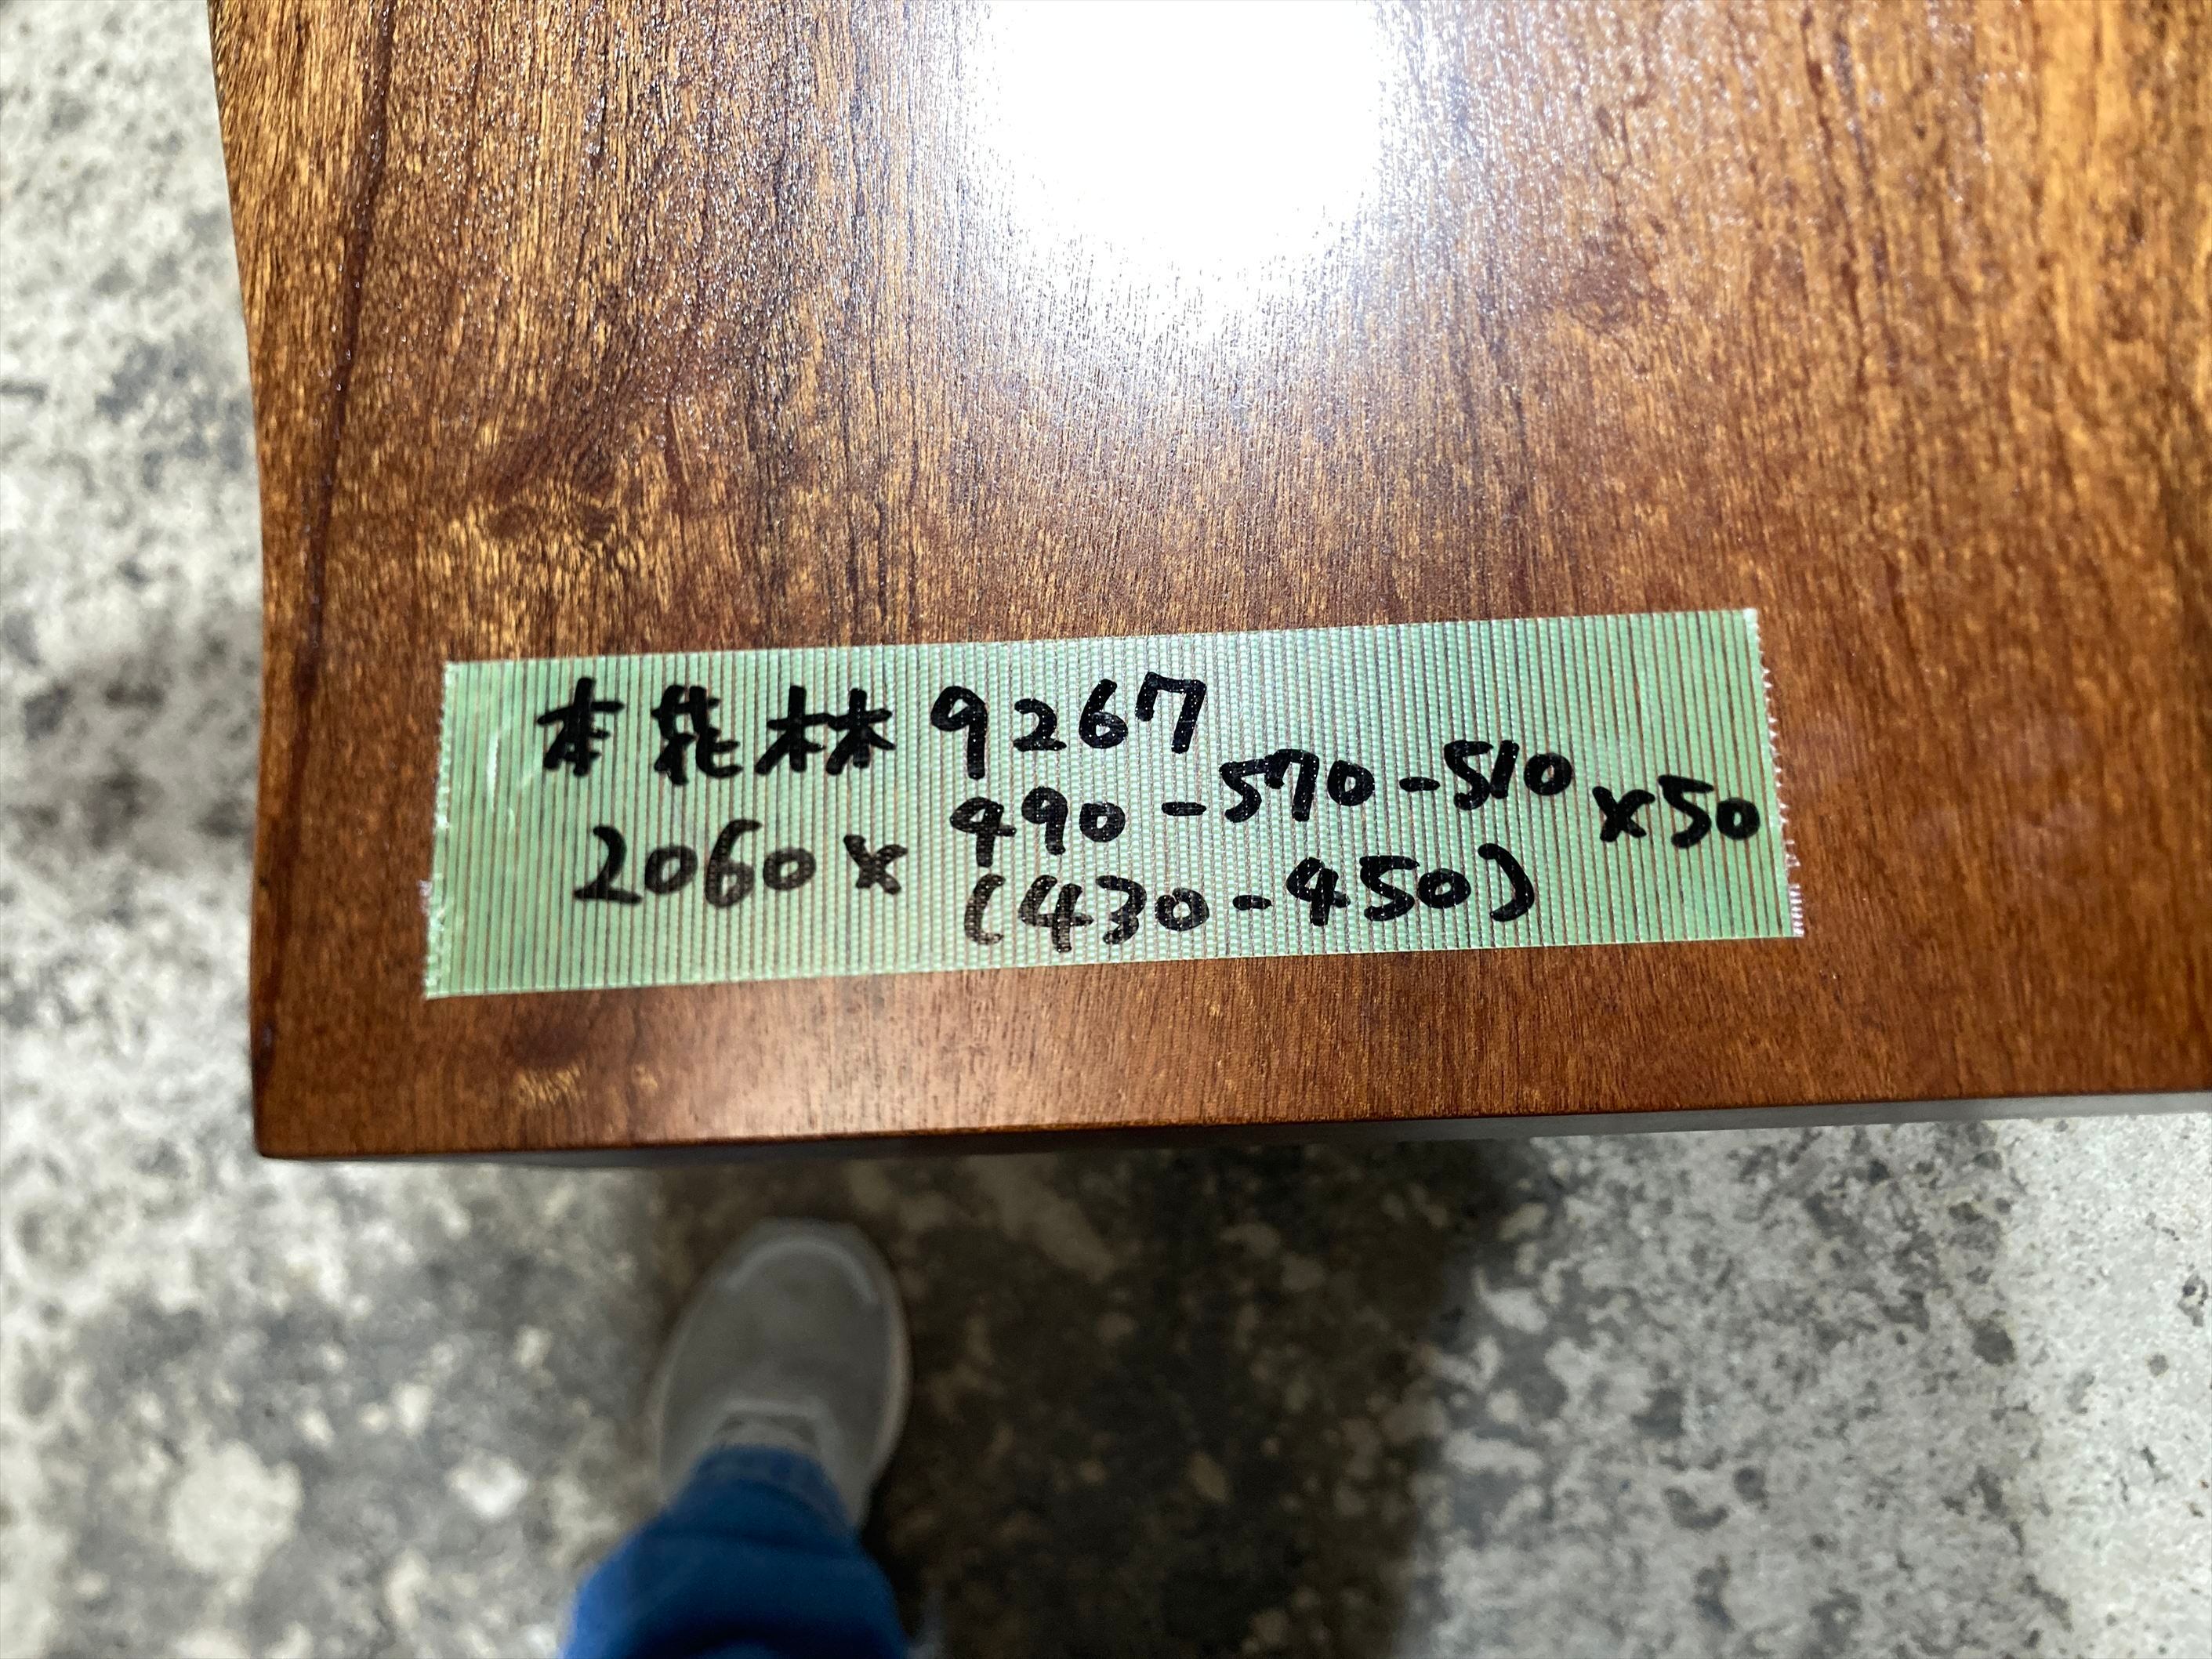 本花林 9267
2060× 490-570-510 ×50
(430-450)